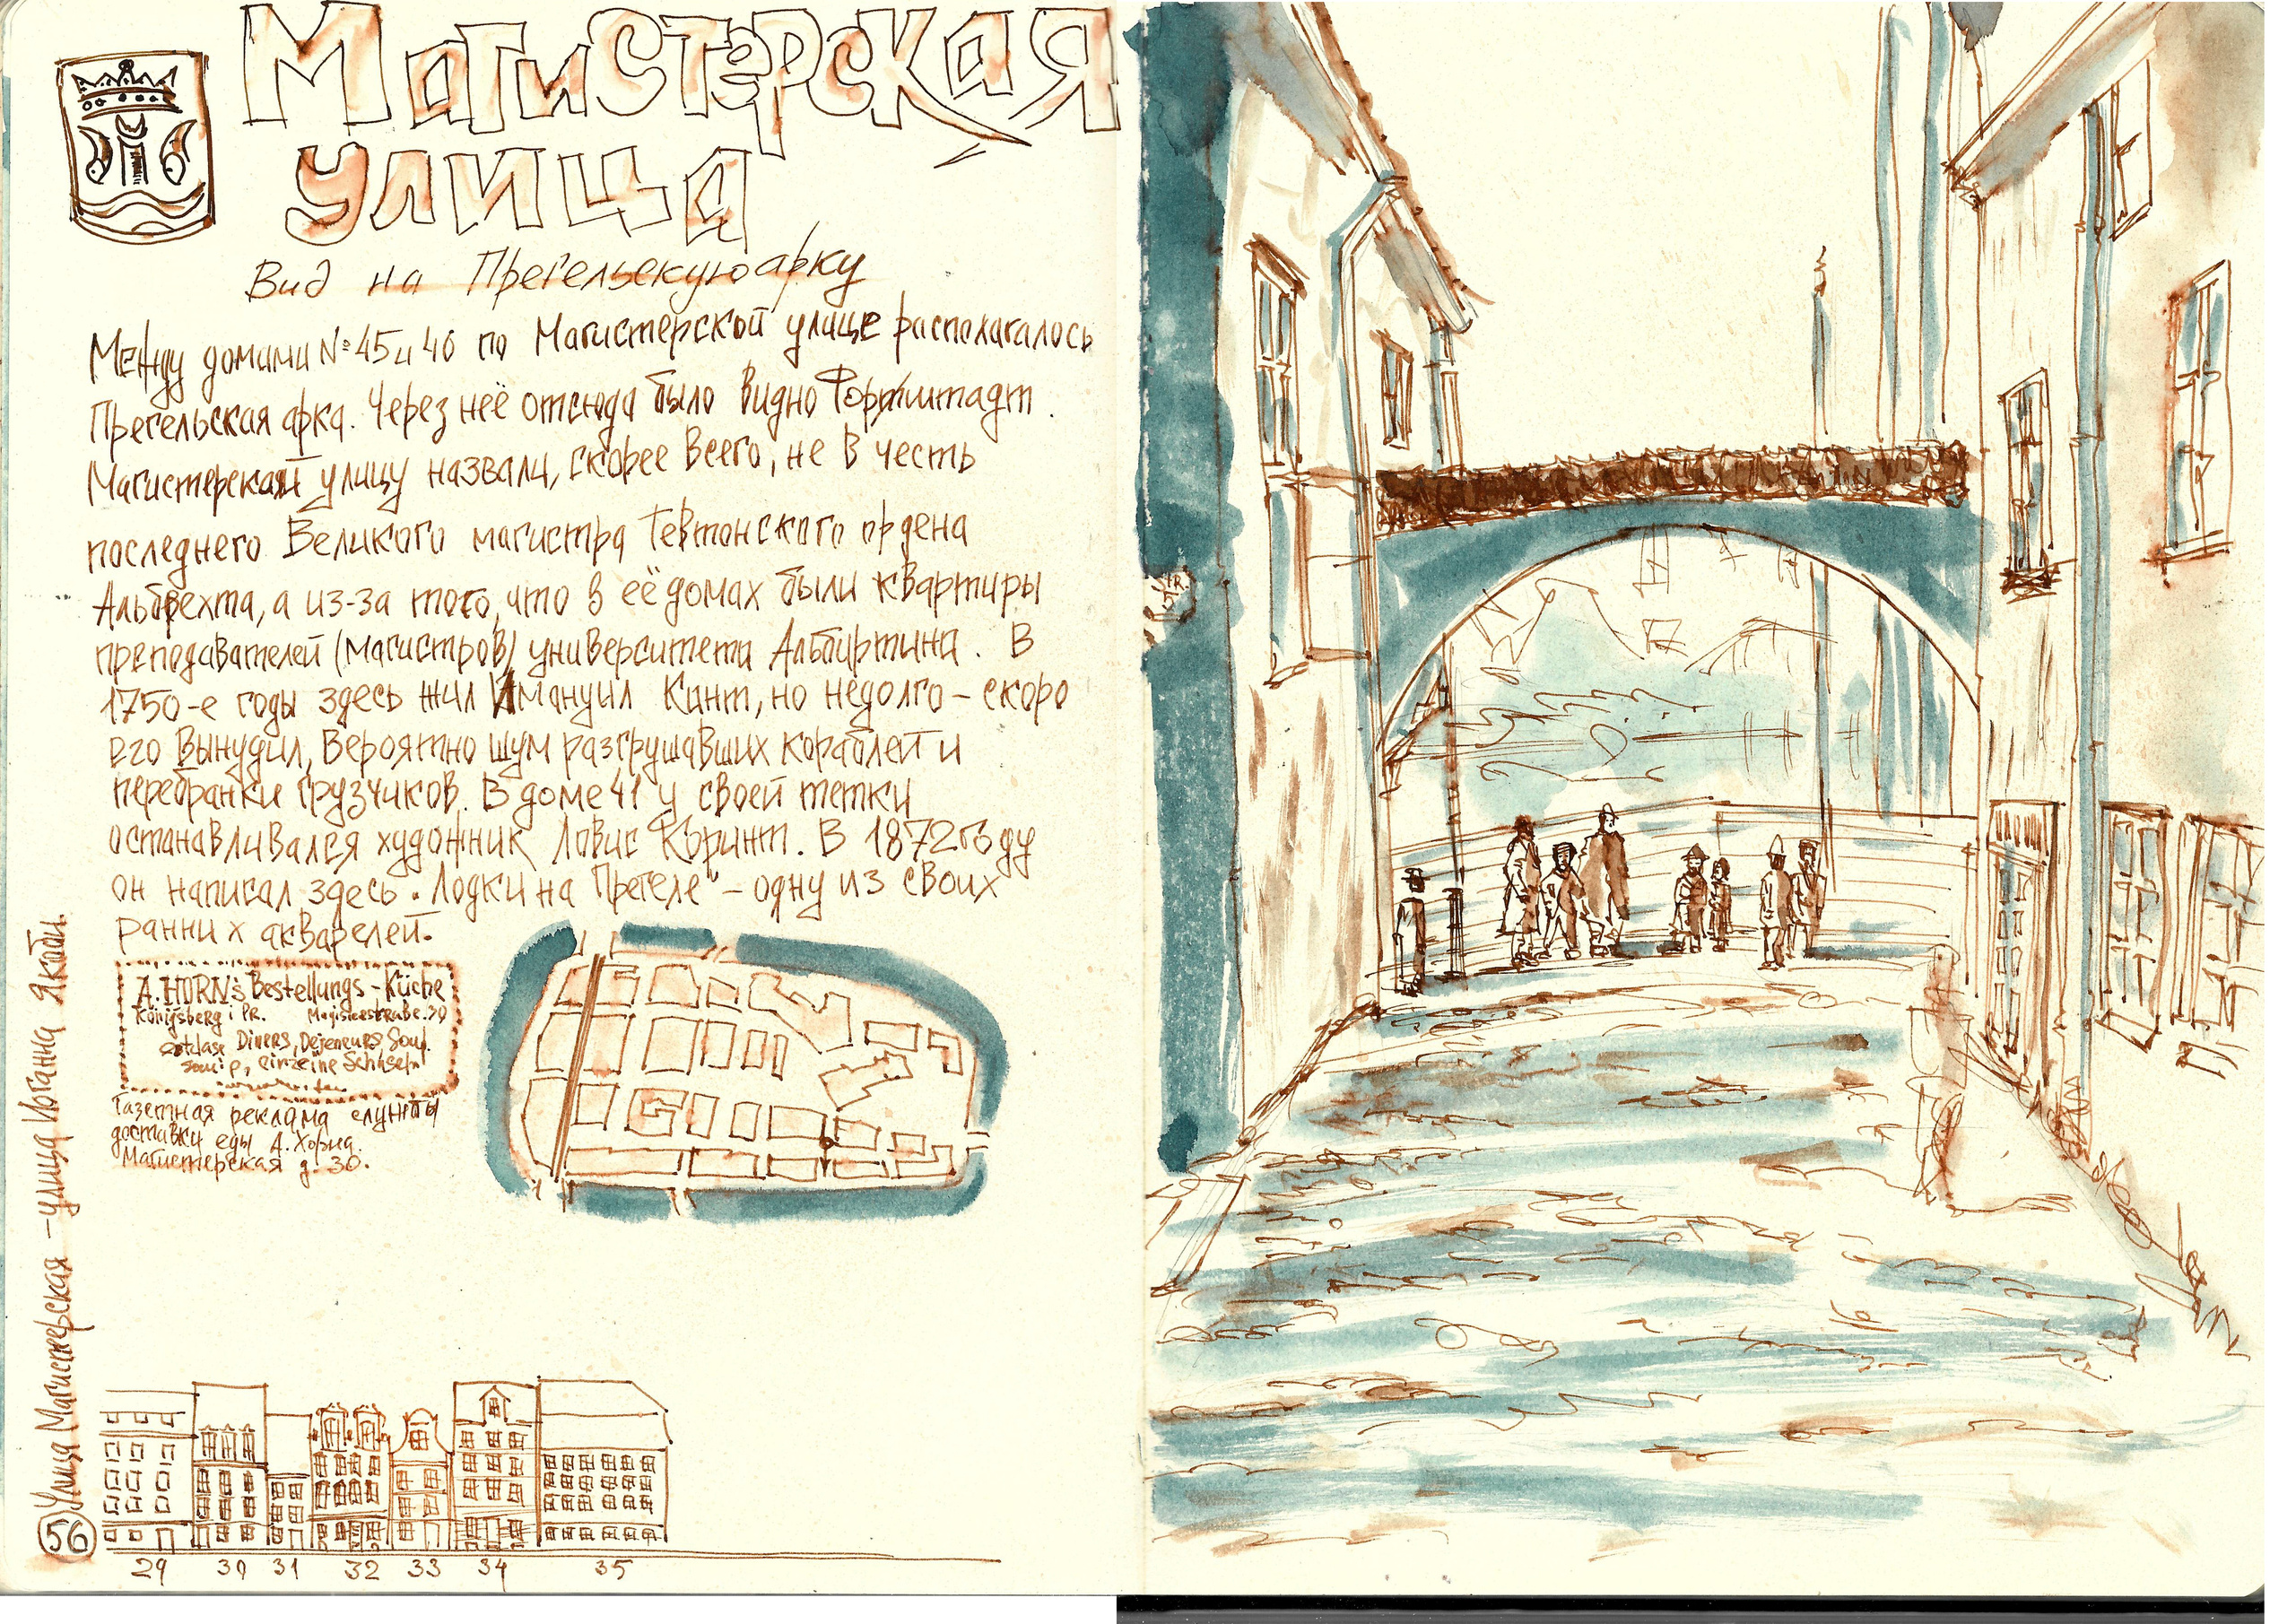 Магистерская
улица
Вид на Прегельскую арку
Между домами №45 и 46 по Магистерской улице располагалось
Прегельская арка. Через неё отсюда было видно Форштадт.
Магистерскай улицу назвали, скорее всего, не в честь
последнего Великого магистра Тевтонского ордена
Альбрехта, а из-за того, что в её домах были квартиры
преподавателей (магистров) университета Альбиртина. В
1750-е годы здесь жил Имануил Кант, но недолго – скоро
его вынудил, вероятно шум разгрушавших кораблей и
перебранки грузчиков. В доме 41 у своей тетки
останавливался художник Ловис Коринт. В 1872 году
он написал здесь "Лодки на Прегеле" – одну из своих
ранних акварелей.
A. HORN's Bestellungs-Küche
Königsberg i PR. Magisterstraße.30
Diners, Dejeneurs, Soup.
einzeine Schüseln
Газетная реклама службы
доставки еды А. Хорна.
Магистерская д. 30.
Улица Магистерская – улица Иоганна Якоби.
56
29 30 31 32 33 34 35
STR.